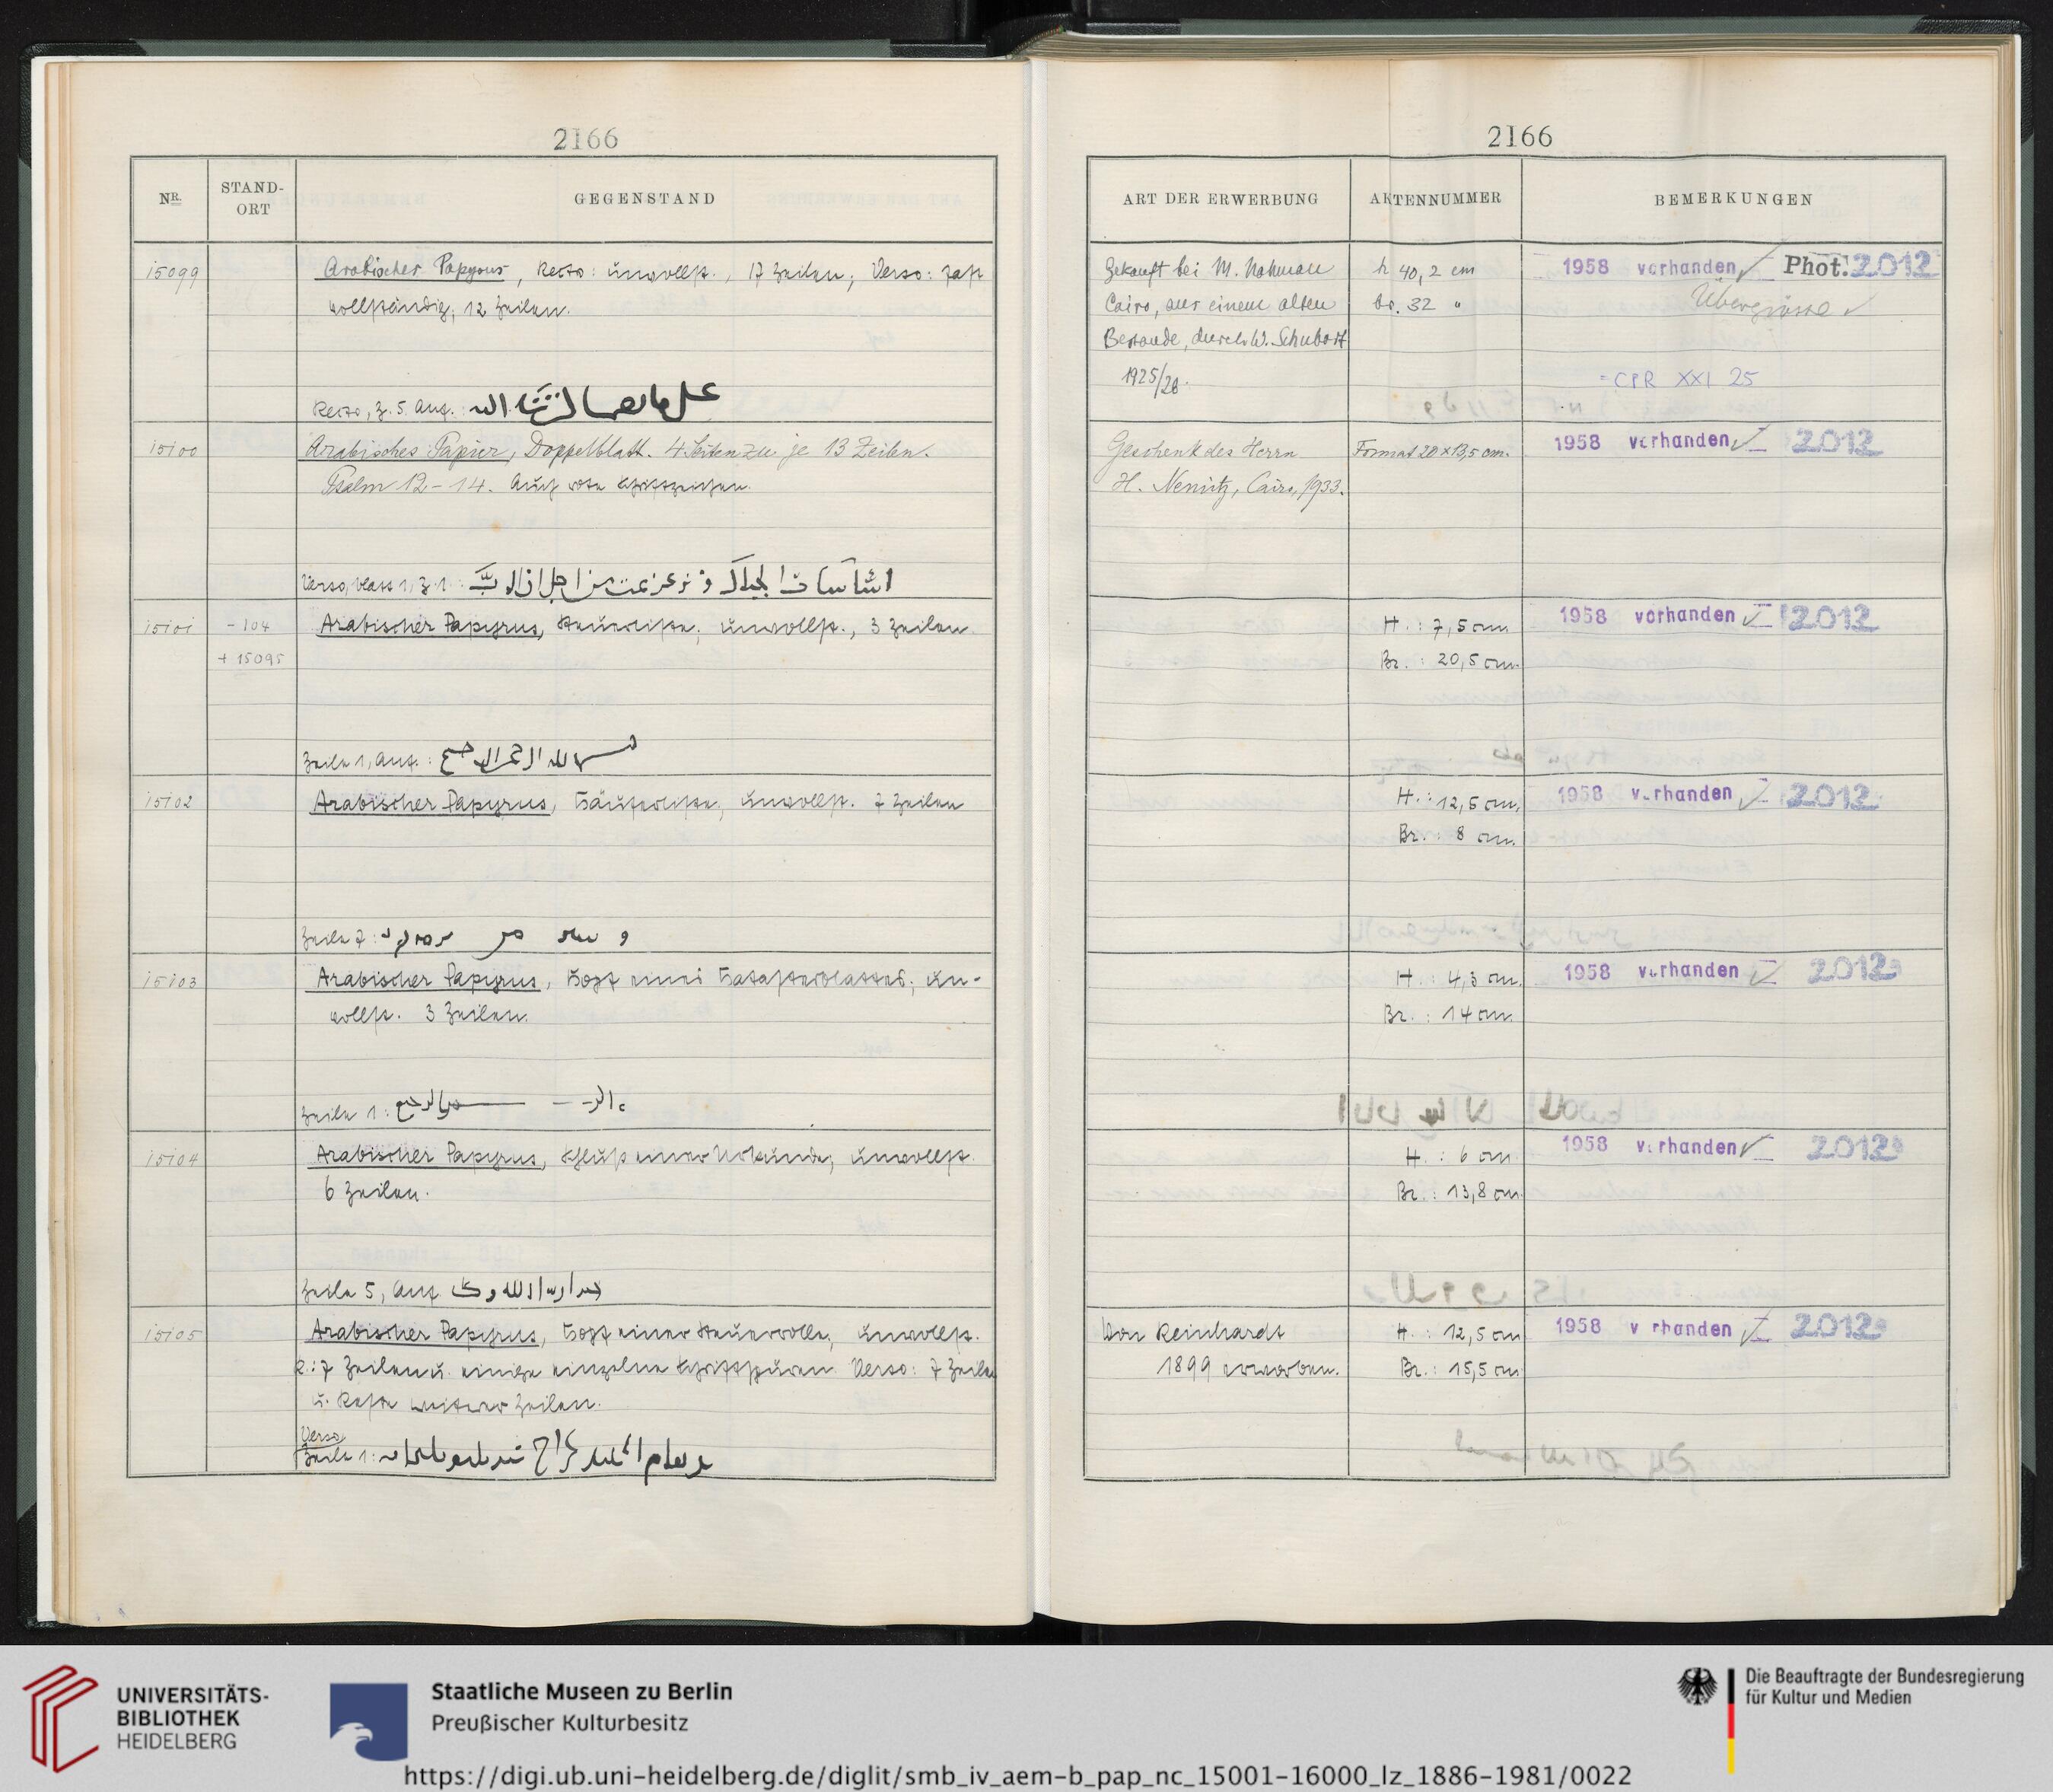 2166
NR.
STAND-
ORT
GEGENSTAND
15099
Arabischer Papyrus, Recto: unvollst., 17 Zeilen; Verso: fast
vollständig, 12 Zeilen.
Recto, Z. 5. Anf.:
15100
Arabisches Papier, Doppelblatt. 4 Seiten zu je 13 Zeilen.
Psalm 12-14. Auch rote Schriftzeichen.
Verso, Blatt 1, Z. 1:
15101
-104
+ 15095
Arabischer Papyrus, Steuerliste; unvollst., 3 Zeilen
Zeile 1, Anf.:
15102
Arabischer Papyrus, Häuserliste; unvollst. 7 Zeilen
Zeile 7:
15103
Arabischer Papyrus, Kopf eines Katasterblattes; un-
vollst. 3 Zeilen.
Zeile 1:
15104
Arabischer Papyrus, Schluß einer Urkunde; unvollst.
6 Zeilen.
Zeile 5, Anf.
15105
Arabischer Papyrus, Kopf einer Steuerrolle, unvollst.
R.: 7 Zeilen u. einige einzelne Schriftspuren. Verso: 7 Zeilen
u. Reste weiterer Zeilen.
Verso
Zeile 1:
2166
ART DER ERWERBUNG
AKTENNUMMER
BEMERKUNGEN
Gekauft bei M. Nahman
Cairo, aus einem alten
Bestande, durch W. Schubart
1925/26.
h 40,2 cm
br. 32 "
1958 vorhanden ✓ Phot. 2012
Übergrösse ✓
= CPR XXI 25
Geschenk des Herrn
H. Nemitz, Cairo, 1933.
Format 20 x 13,5 cm.
1958 vorhanden ✓ 2012
H.: 7,5 cm
Br.: 20,5 cm.
1958 vorhanden ✓ 2012
H.: 12,5 cm.
Br.: 8 cm.
1958 v rhanden ✓ 2012
H.: 4,3 cm.
Br.: 14 cm.
1958 vorhanden ✓ 2012
H.: 6 cm
Br.: 13,8 cm
1958 v rhanden ✓ 2012
Von Reinhardt
1899 erworben.
H.: 12,5 cm
Br.: 15,5 cm
1958 v rhanden ✓ 2012
UNIVERSITÄTS-
BIBLIOTHEK
HEIDELBERG
Staatliche Museen zu Berlin
Preußischer Kulturbesitz
Die Beauftragte der Bundesregierung
für Kultur und Medien
https://digi.ub.uni-heidelberg.de/diglit/smb_iv_aem-b_pap_nc_15001-16000_lz_1886-1981/0022